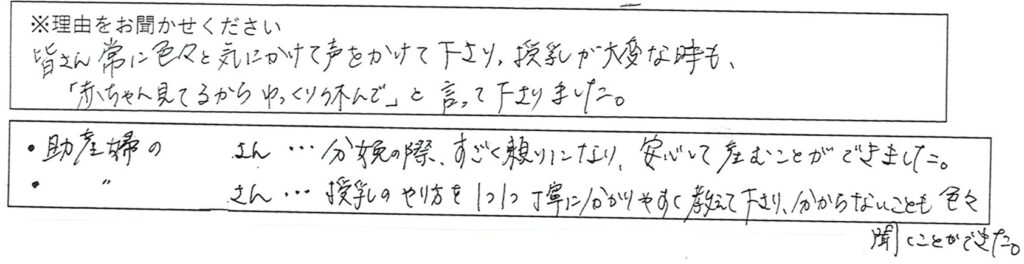 ※理由をお聞かせください
皆さん常に色々と気にかけて声をかけて下さり、授乳が大変な時も、
「赤ちゃん見てるからゆっくり休んで」と言って下さりました。
・助産婦の さん…分娩の際、すごく頼りになり、安心して産むことができました。
・ 〃 さん…授乳のやり方を1つ1つ丁寧に分かりやすく教えて下さり、分からないことも色々
聞くことができた。